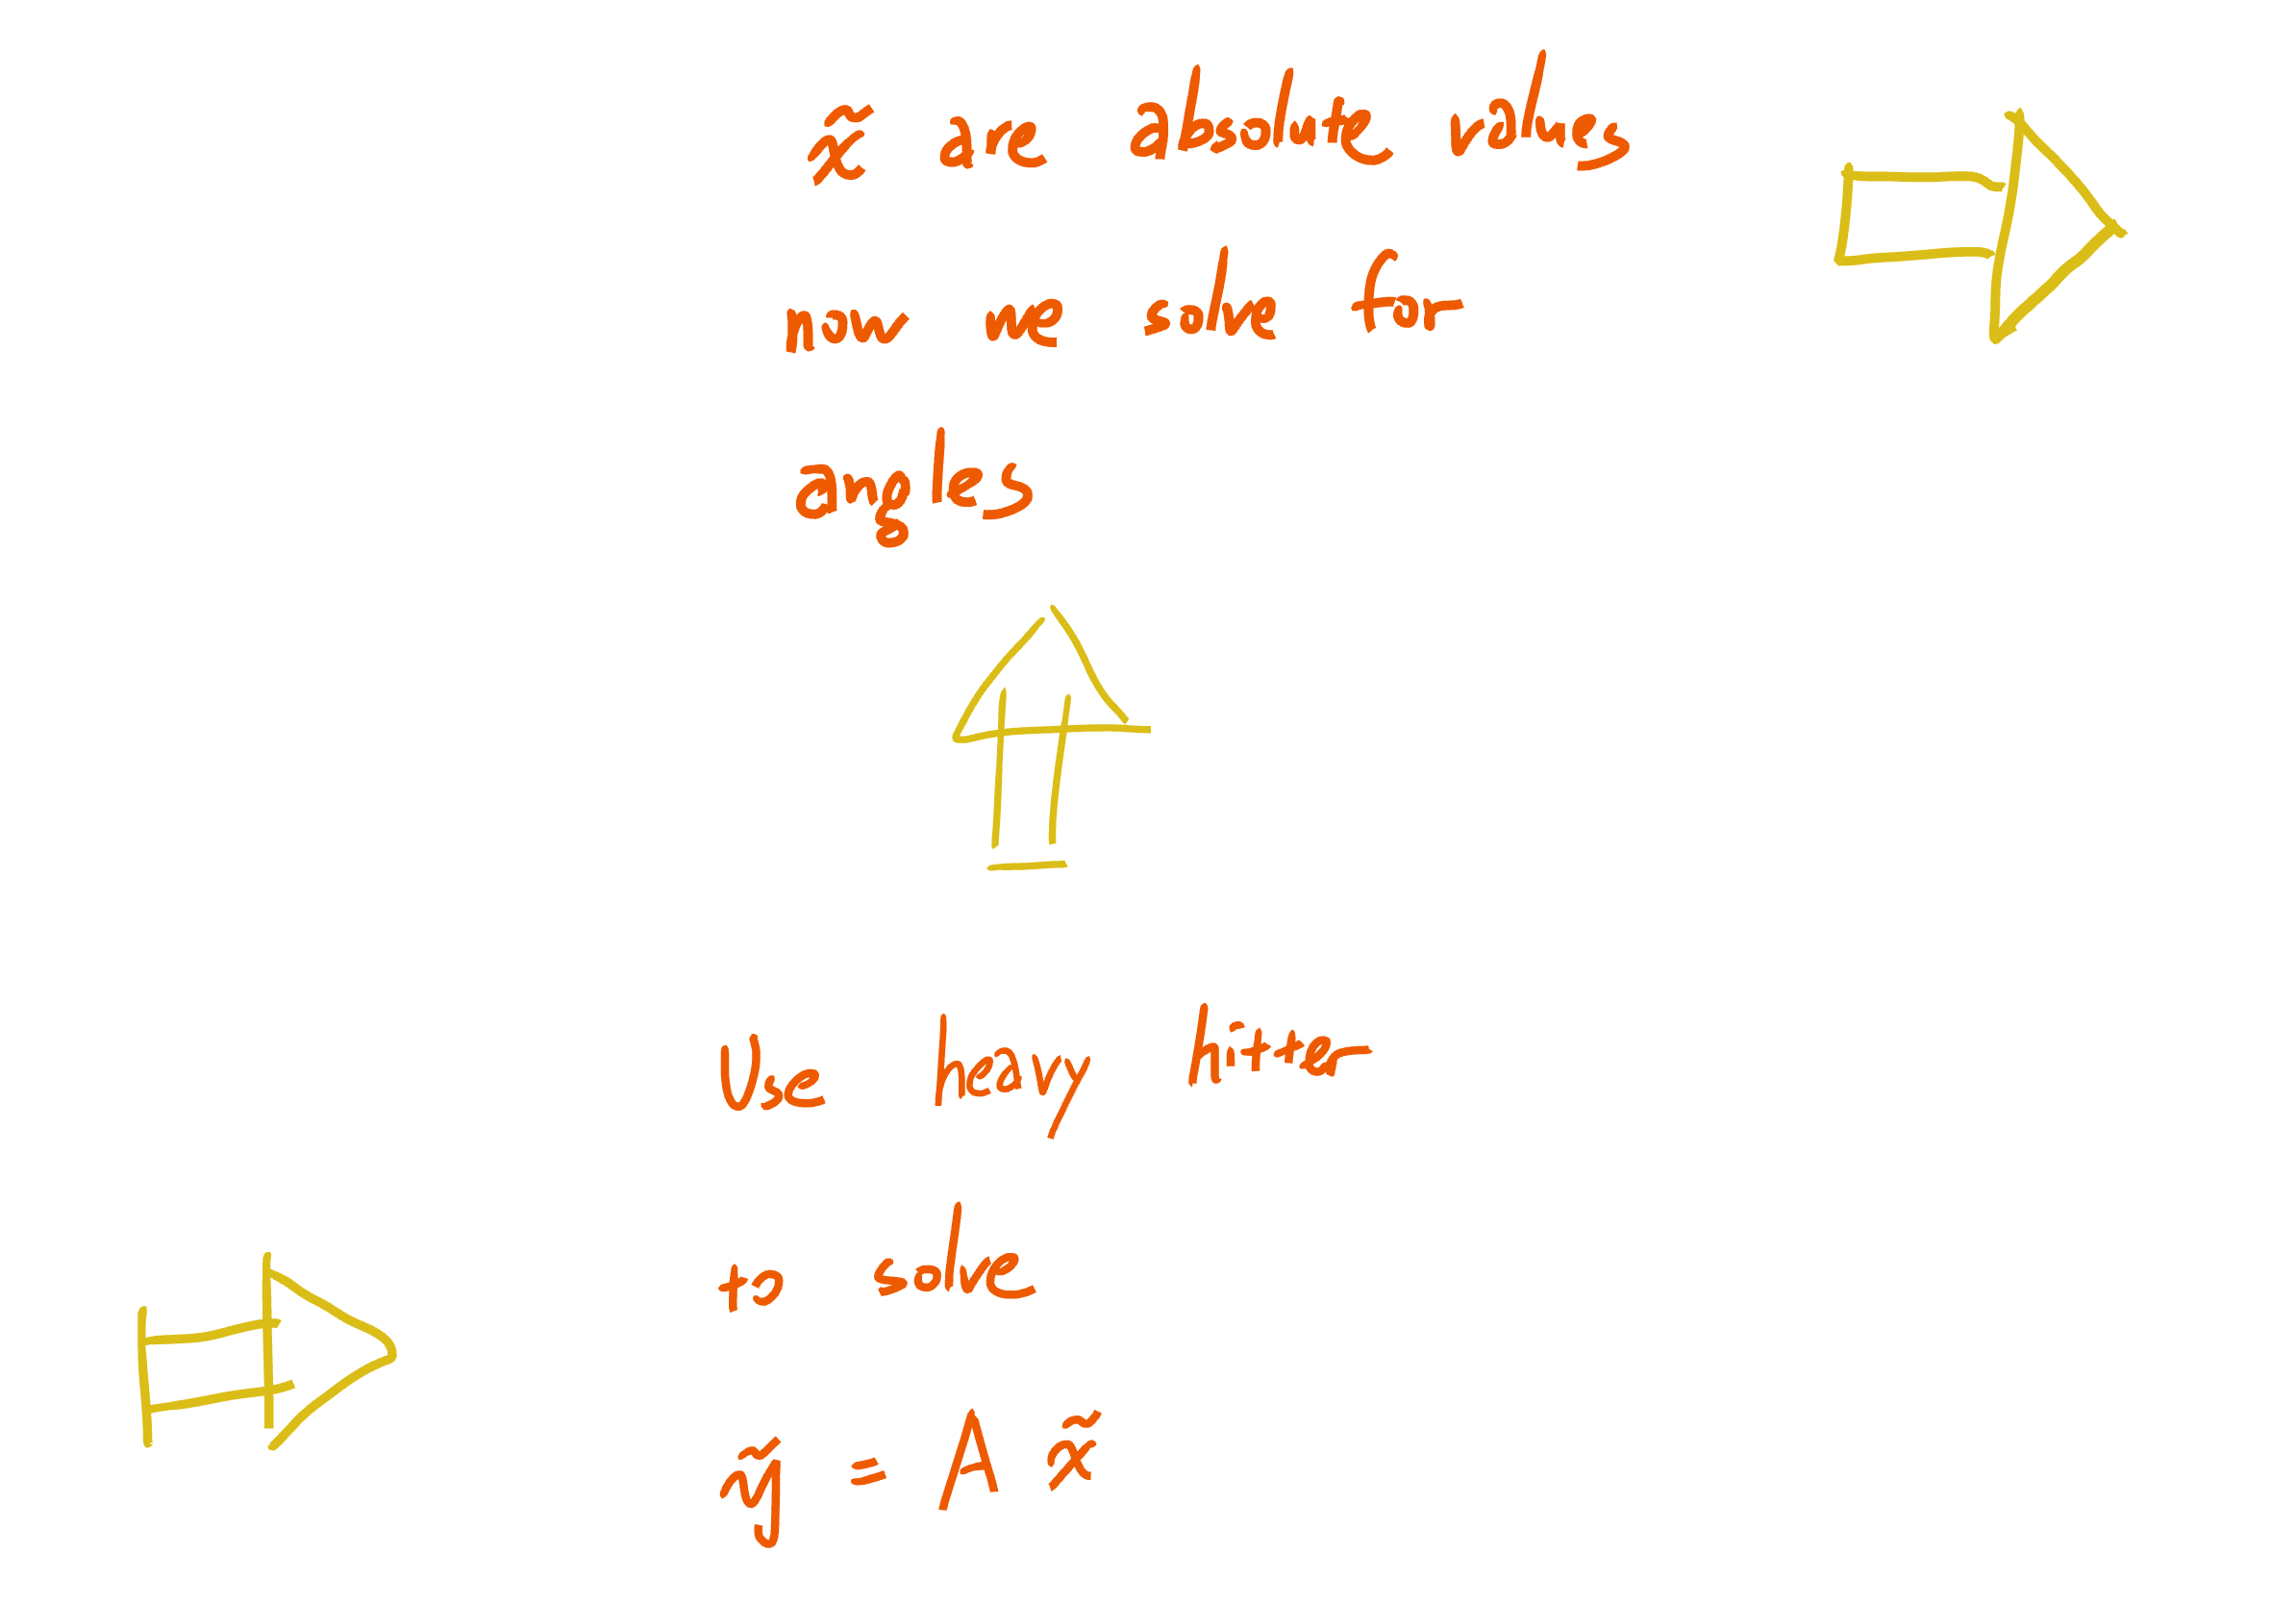 x̃ are absolute values
now we solve for
angles
Use heavy hitter
to solve
ỹ = A x̃